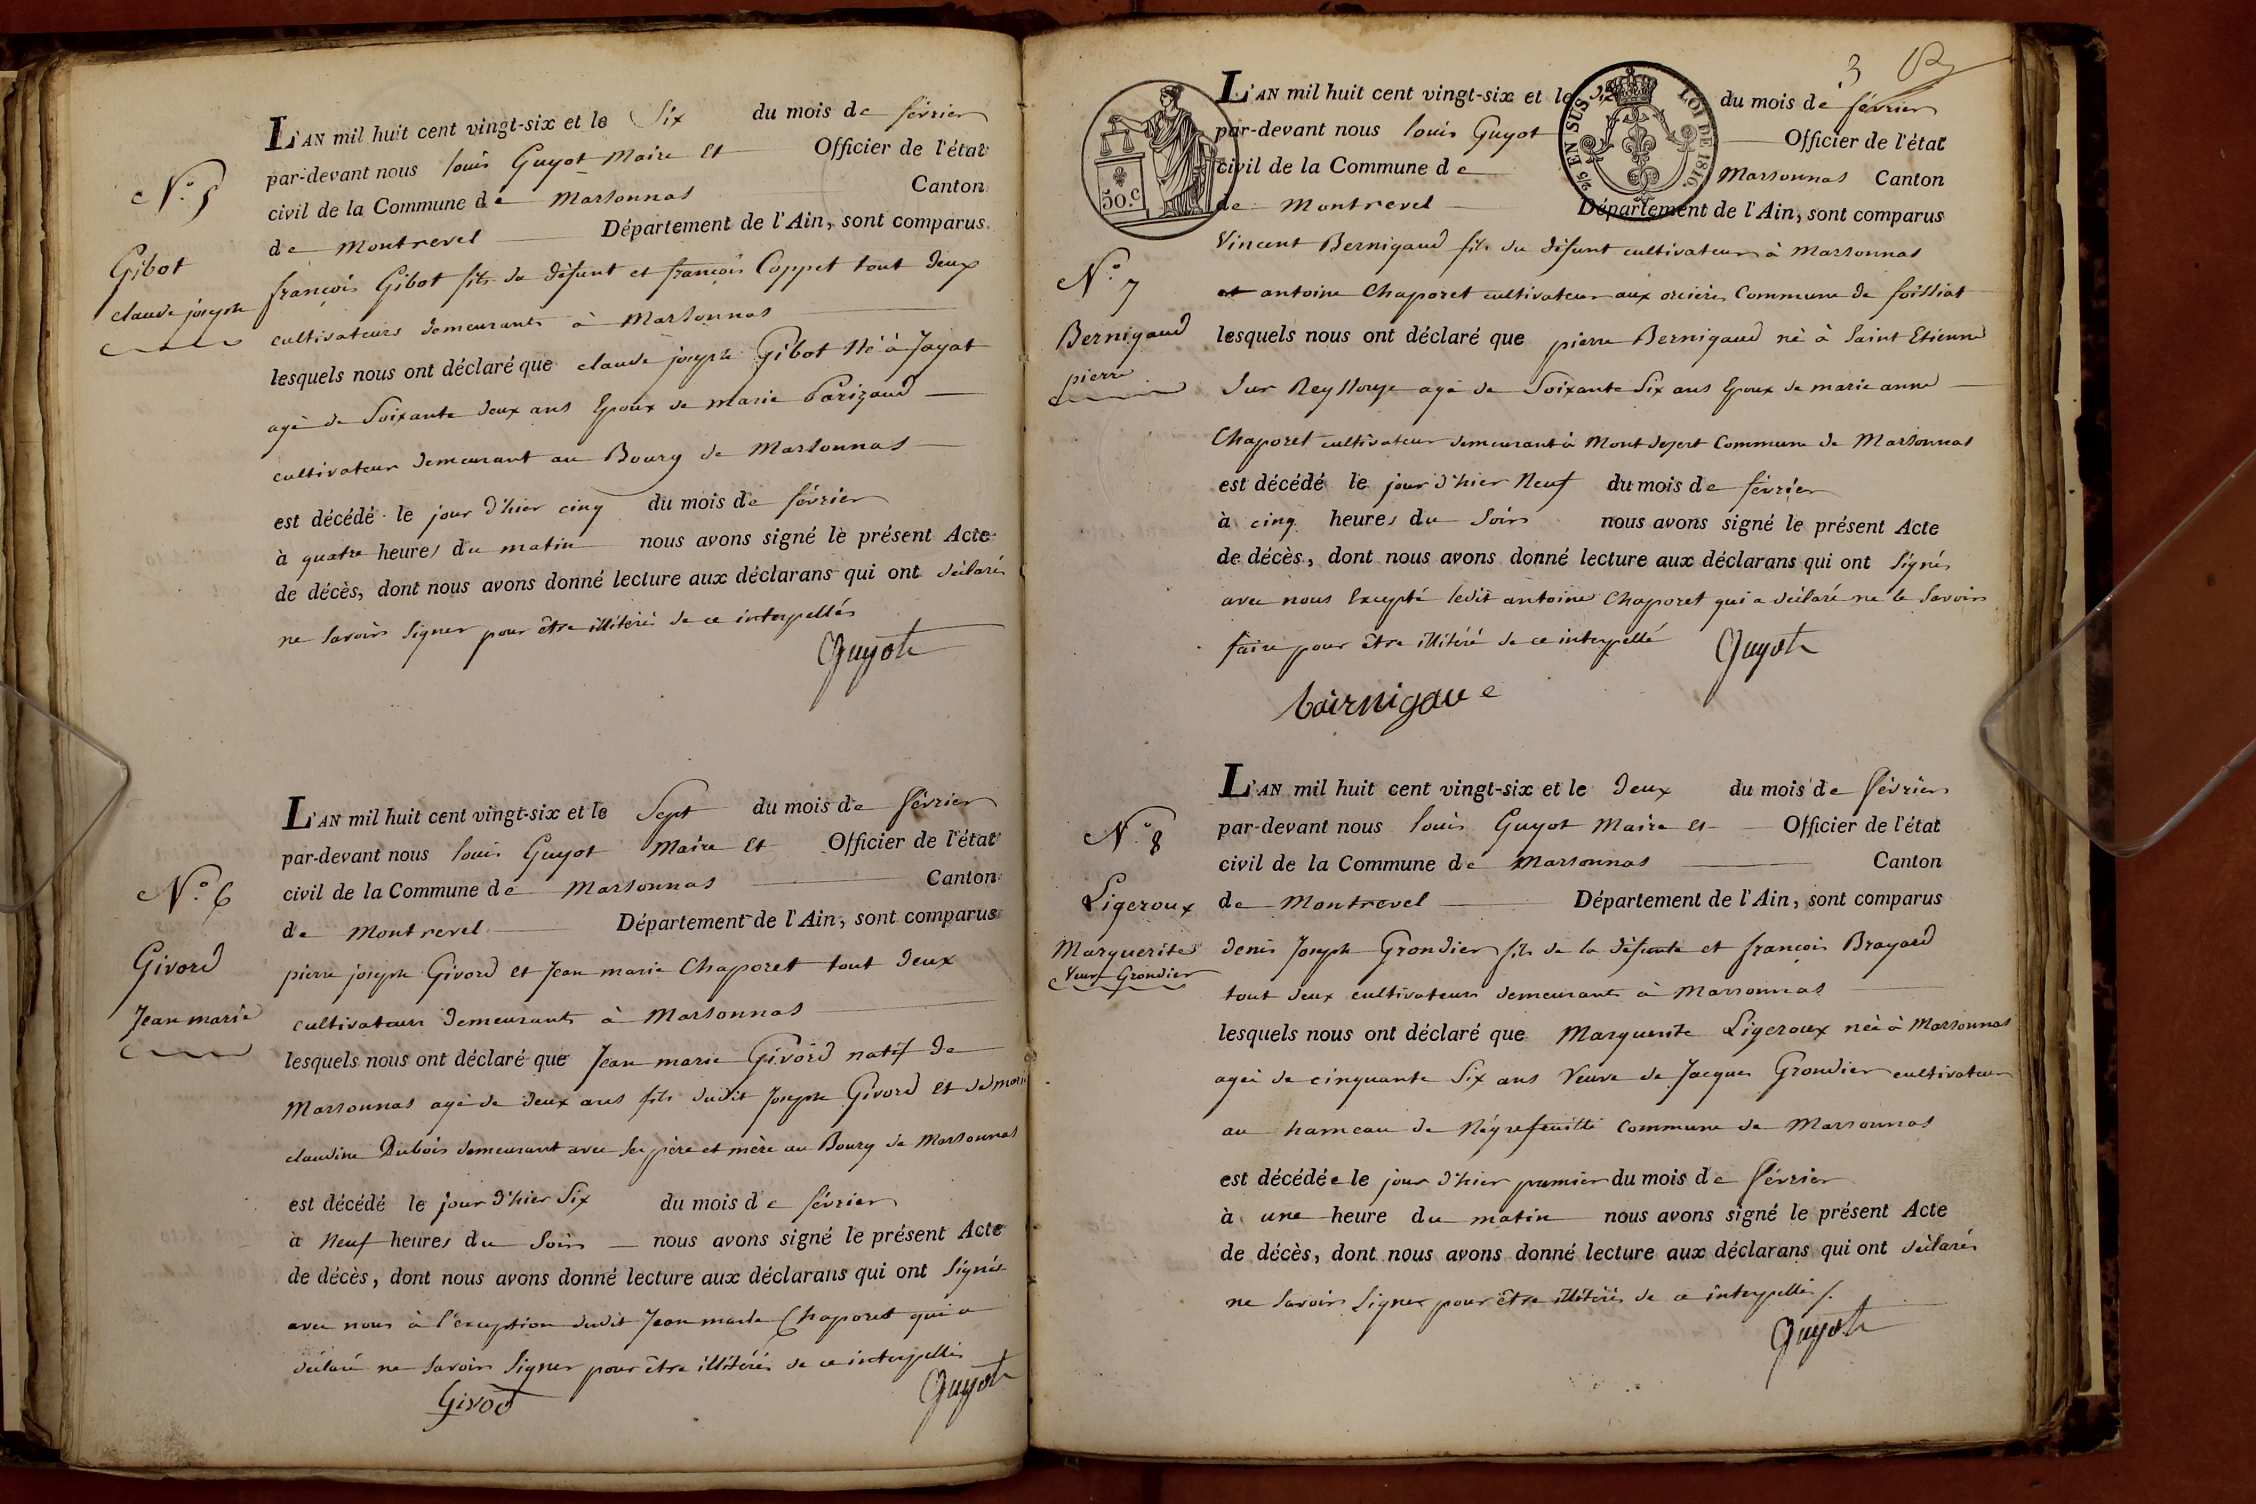 L'AN mil huit cent vingt-six et le Six du mois de février
par-devant nous louis Guyot Maire et Officier de l'état
civil de la Commune de Marsonnas Canton
de Montrevel Département de l'Ain, sont comparus
françois Gibot fils du défunt et françois Coppet tout deux
cultivateurs demeurants à Marsonnas
lesquels nous ont déclaré que claude joseph Gibot Né à Jayat
agé de Soixante deux ans Epoux de marie Parizaud
cultivateur demeurant au Bourg de Marsonnas
est décédé le jour d'hier cinq du mois de février
à quatre heures du matin nous avons signé le présent Acte
de décès, dont nous avons donné lecture aux déclarans qui ont déclarés
ne savoir signer pour être illitérés de ce interpellés
Guyot
N.o 5
Gibot
claude joseph
L'AN mil huit cent vingt-six et le Sept du mois de février
par-devant nous louis Guyot Maire et Officier de l'état
civil de la Commune de Marsonnas Canton
de Montrevel Département de l'Ain, sont comparus
pierre joseph Givord et Jean marie Chaporet tout deux
cultivateurs demeurants à Marsonnas
lesquels nous ont déclaré que Jean marie Givord natif de
Marsonnas agé de deux ans fils dudit Joseph Givord et de marie
claudine Dubois demeurant avec ses père et mère au Bourg de Marsonnas
est décédé le jour d'hier Six du mois de février
à Neuf heures du Soir nous avons signé le présent Acte
de décès, dont nous avons donné lecture aux déclarans qui ont Signés
avec nous à l'exception dudit Jean marie Chaporet qui a
déclaré ne savoir signer pour être illitérés de ce interpellés
Givod Guyot
N.o 6
Givord
Jean marie
3
50.C
2/5 EN SUS LOI DE 1816.
L'AN mil huit cent vingt-six et le dix du mois de février
par-devant nous louis Guyot Officier de l'état
civil de la Commune de Marsonnas Canton
de Montrevel Département de l'Ain, sont comparus
Vincent Bernigaud fils du défunt cultivateur à Marsonnas
et antoine Chaporet cultivateur aux orcières Commune de foissiat
lesquels nous ont déclaré que pierre Bernigaud né à Saint Etienne
Sur Reyssouze agé de Soixante Six ans Epoux de marie anne
Chaporet cultivateur demeurant à Mont desert Commune de Marsonnas
est décédé le jour d'hier Neuf du mois de février
à cinq heures du Soir nous avons signé le présent Acte
de décès, dont nous avons donné lecture aux déclarans qui ont Signés
avec nous Excepté ledit antoine Chaporet qui a déclaré ne le Savoir
faire pour être illitéré de ce interpellé Guyot
bairnigaue
N.o 7
Bernigaud
pierre
L'AN mil huit cent vingt-six et le Deux du mois de février
par-devant nous louis Guyot Maire et Officier de l'état
civil de la Commune de Marsonnas Canton
de Montrevel Département de l'Ain, sont comparus
denis Joseph Grondier fils de la défunte et françois Brayard
tout deux cultivateurs demeurants à Marsonnas
lesquels nous ont déclaré que Marguerite Ligeroux née à Marsonnas
agée de cinquante Six ans Veuve de Jacques Grondier cultivateur
au hameau de Négrefeuille Commune de Marsonnas
est décédée le jour d'hier premier du mois de février
à une heure du matin nous avons signé le présent Acte
de décès, dont nous avons donné lecture aux déclarans qui ont déclarés
ne savoir signer pour être illitérés de ce interpellés
Guyot
N.o 8
Ligeroux
Marguerite
Veuve Grondier